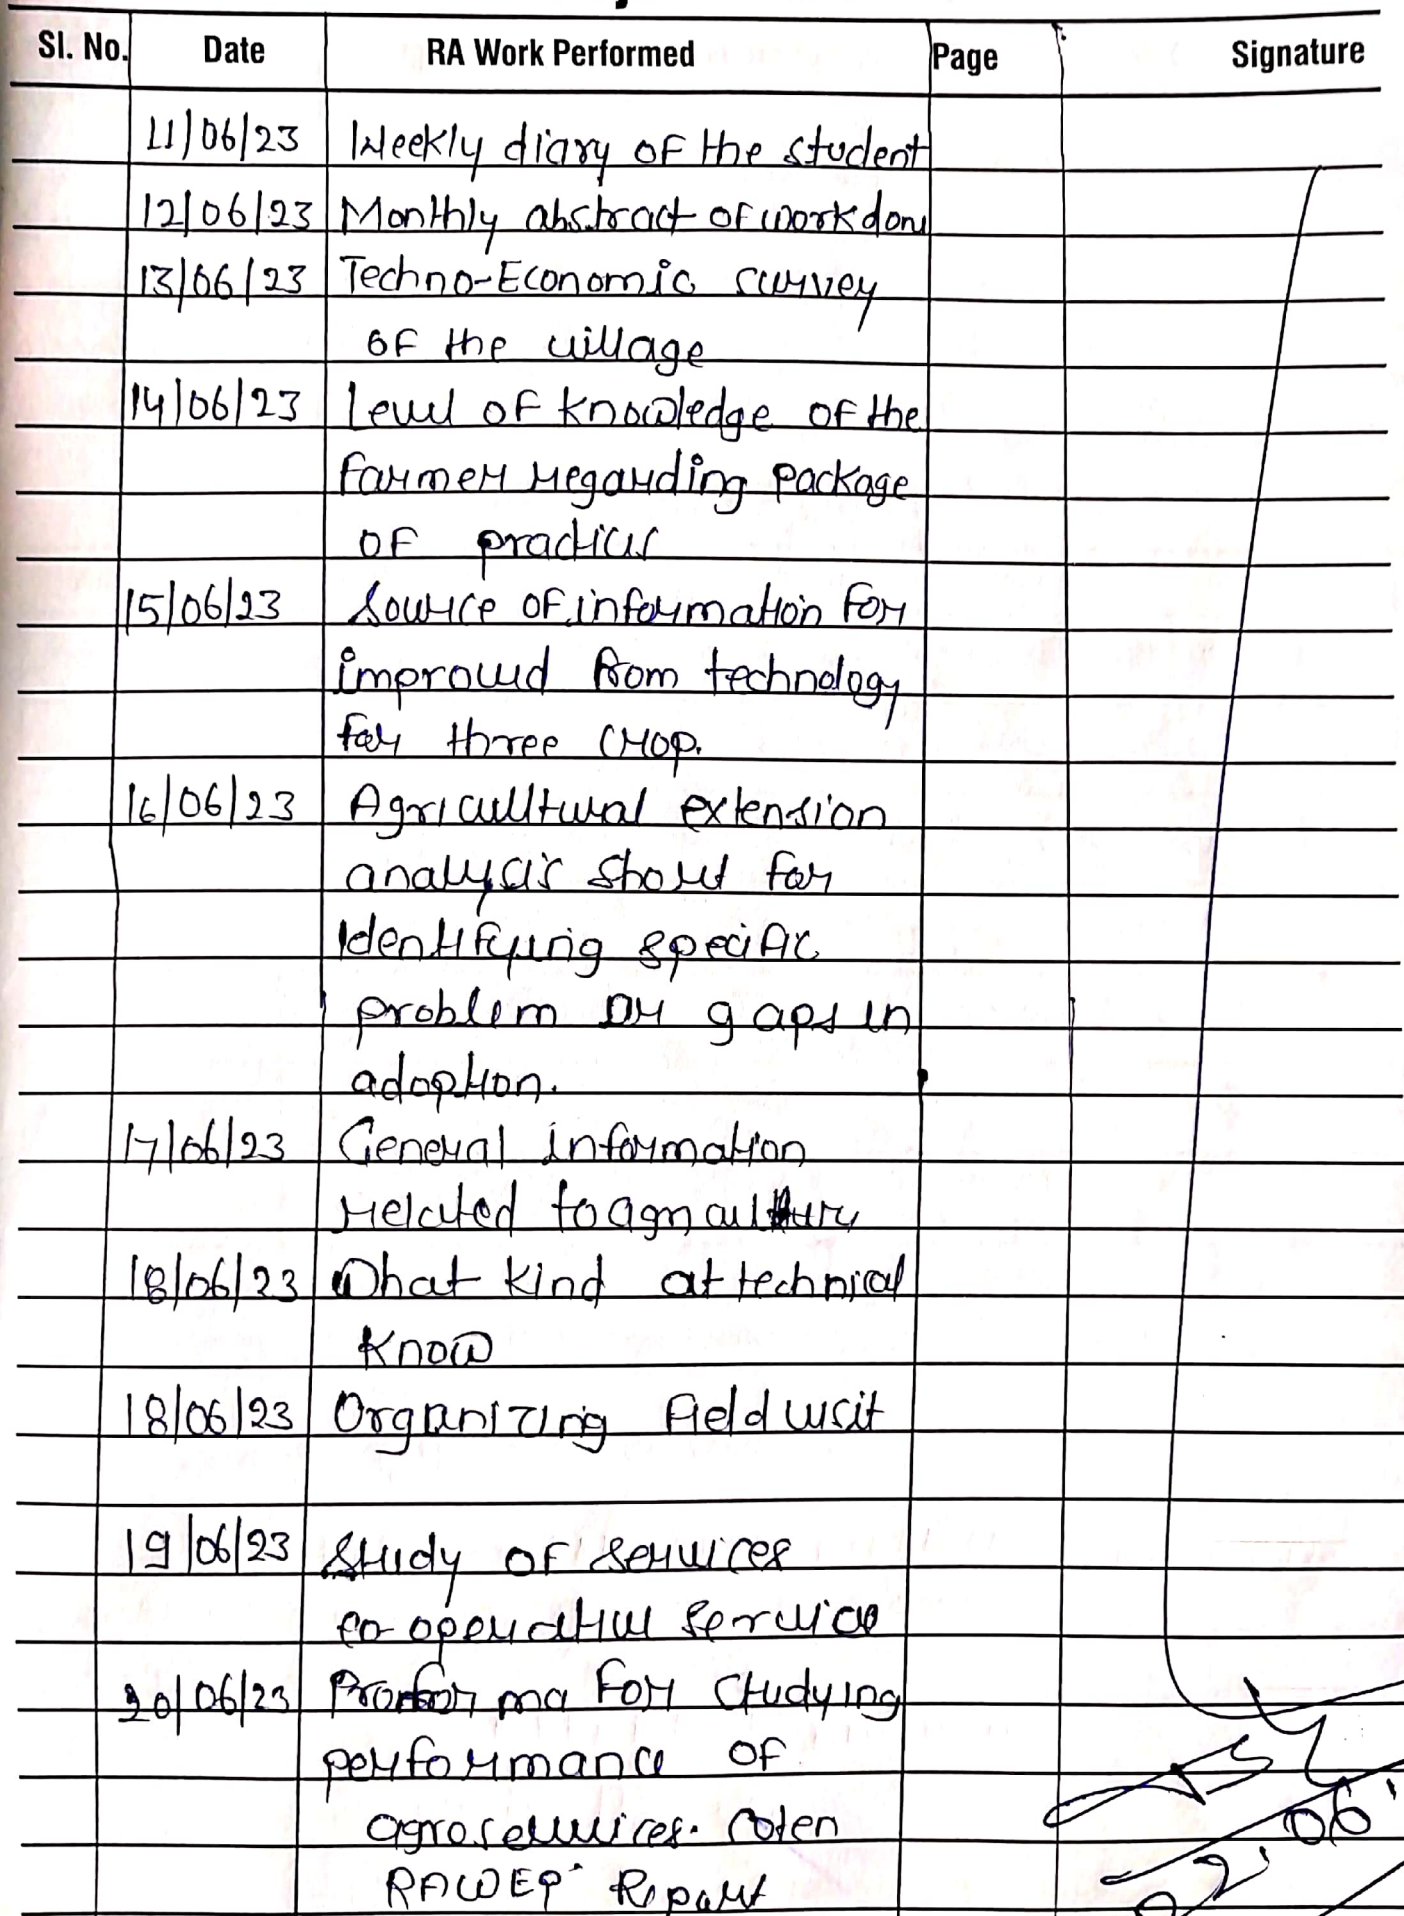 Sl. No. Date RA Work Performed Page Signature
11/06/23 Weekly diary of the student
12/06/23 Monthly abstract of work done
13/06/23 Techno-Economic survey
of the village
14/06/23 Level of knowledge of the
farmer regarding package
of practices
15/06/23 Source of information for
improved from technology
for three crop.
16/06/23 Agricultural extension
analysis short for
Identifying specific
problem or gaps in
adoption.
17/06/23 General information
related to agriculture
18/06/23 What kind at technical
know
18/06/23 Organizing field visit
19/06/23 Study of services
co-operative service
20/06/23 Proforma for studying
performance of
agroservices.
RAWEP Report
06